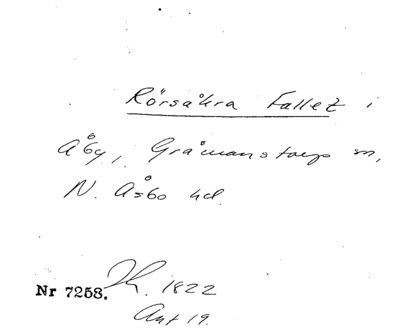 Rörsåkra Fallet i
Åby, Gråmanstorps sn,
N. Åsbo hd.
Nr 7258. Th. 1822
Ant 19.